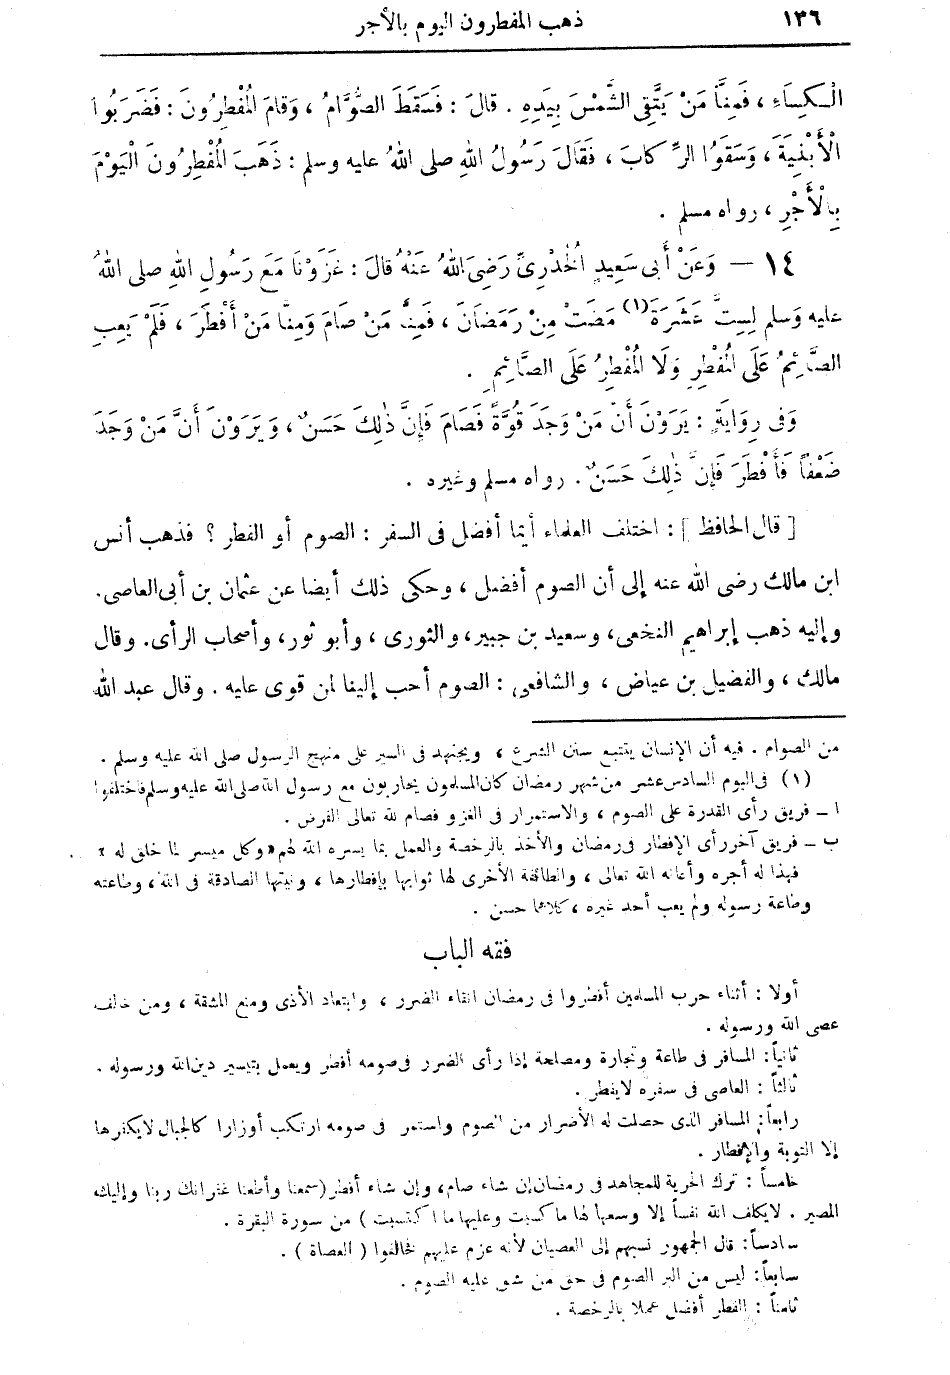 ١٣٦
ذهب المفطرون اليوم بالأجر
الْكِسَاءِ ، فَمِنَّا مَنْ يَتَّقِى الشَّمْسَ بِيَدِهِ . قالَ : فَسَقَطَ الصُّوَّامُ ، وَقامَ الْمُفْطِرُونَ : فَضَرَبُوا
الْأَبْنِيَةَ ، وَسَقَوُا الرِّكابَ ، فَقَالَ رَسُولُ اللهِ صلى اللهُ عليه وسلم : ذَهَبَ الْمُفْطِرُونَ الْيَوْمَ
بِالْأَجْرِ ، رواه مسلم .
١٤ — وَعَنْ أَبى سَعِيدٍ الْخُدْرِىِّ رَضِىَ اللهُ عَنْهُ قالَ : غَزَوْنَا مَعَ رَسُولِ اللهِ صلى اللهُ
عليه وَسلم لِسِتَّ عَشَرَةَ (١) مَضَتْ مِنْ رَمَضَانَ ، فَمِنَّا مَنْ صَامَ وَمِنَّا مَنْ أَفْطَرَ ، فَلَمْ يَعِبِ
الصَّائِمُ عَلَى الْمُفْطِرِ وَلَا الْمُفْطِرُ عَلَى الصَّائِمِ .
وَفى رِوَايَةٍ : يَرَوْنَ أَنَّ مَنْ وَجَدَ قُوَّةً فَصَامَ فَإِنَّ ذٰلِكَ حَسَنٌ ، وَيَرَوْنَ أَنَّ مَنْ وَجَدَ
ضَعْفاً فَأَفْطَرَ فَإِنَّ ذٰلِكَ حَسَنٌ . رواه مسلم وغيره .
[ قال الحافظ ] : اختلف العلماء أيّما أفضل فى السفر : الصوم أو الفطر ؟ فذهب أنس
ابن مالك رضى الله عنه إلى أن الصوم أفضل ، وحكى ذلك أيضا عن عثمان بن أبى العاصى.
وإليه ذهب إبراهيم النخعى، وسعيد بن جبير، والثورى ، وأبو ثور، وأصحاب الرأى. وقال
مالك ، والفضيل بن عياض ، والشافعى : الصوم أحب إلينا لمن قوى عليه . وقال عبد الله
من الصوام . فيه أن الإنسان يتتبع سنن الشرع ، ويجتهد فى السير على منهج الرسول صلى الله عليه وسلم .
(١) فى اليوم السادس عشر من شهر رمضان كان المسلمون يحاربون مع رسول الله صلى الله عليه وسلم فاختلفوا
ا — فريق رأى القدرة على الصوم ، والاستمرار فى الغزو فصام لله تعالى الفرض .
ب — فريق آخر رأى الإفطار فى رمضان والأخذ بالرخصة والعمل بما يسره الله لهم «وكل ميسر لما خلق له » .
فهذا له أجره وأعانه الله تعالى ، والطائفة الأخرى لها ثوابها بإفطارها ، ونيتها الصادقة فى الله ، وطاعته
وطاعة رسوله ولم يعب أحد غيره ، كلاهما حسن .
فقه الباب
أولا : أثناء حرب المسلمين أفطروا فى رمضان اتقاء الضرر ، وابتعاد الأذى ومنع المشقة ، ومن خالف
عصى الله ورسوله .
ثانياً : المسافر فى طاعة وتجارة ومصلحة إذا رأى الضرر فى صومه أفطر ويعمل بتيسير دين الله ورسوله .
ثالثاً : العاصى فى سفره لا يفطر .
رابعاً: المسافر الذى حصلت له الأضرار من الصوم واستمر فى صومه ارتكب أوزارا كالجبال لا يكفرها
إلا التوبة والإفطار .
خامساً : ترك الحرية للمجاهد فى رمضان إن شاء صام ، وإن شاء أفطر (سمعنا وأطعنا غفرانك ربنا وإليك
المصير . لا يكلف الله نفساً إلا وسعها لها ما كسبت وعليها ما اكتسبت ) من سورة البقرة .
سادساً: قال الجمهور نسبهم إلى العصيان لأنه عزم عليهم فخالفوا ( العصاة ) .
سابعاً: ليس من البر الصوم فى حق من شق عليه الصوم .
ثامناً : الفطر أفضل عملا بالرخصة .